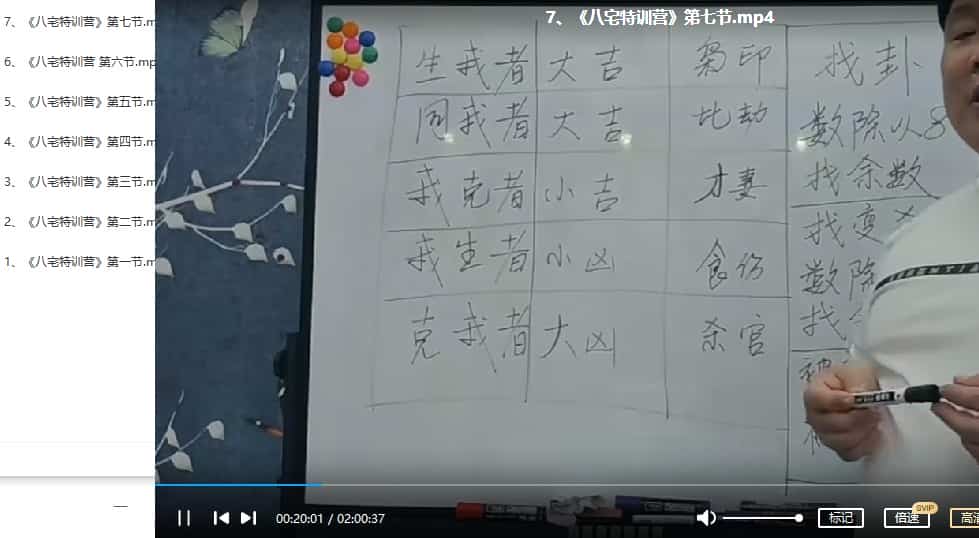 7、《八宅特训营》第七节.mp4
7、《八宅特训营》第七节.m
6、《八宅特训营 第六节.mp
5、《八宅特训营》第五节.m
4、《八宅特训营》第四节.m
3、《八宅特训营》第三节.m
2、《八宅特训营》第二节.m
1、《八宅特训营》第一节.m
生我者 大吉 枭印 找卦
同我者 大吉 比劫 数除以8
找余数
我克者 小吉 才妻
找变
我生者 小凶 食伤 数除
找
克我者 大凶 杀官
00:20:01 / 02:00:37
标记
倍速
SVIP
高清